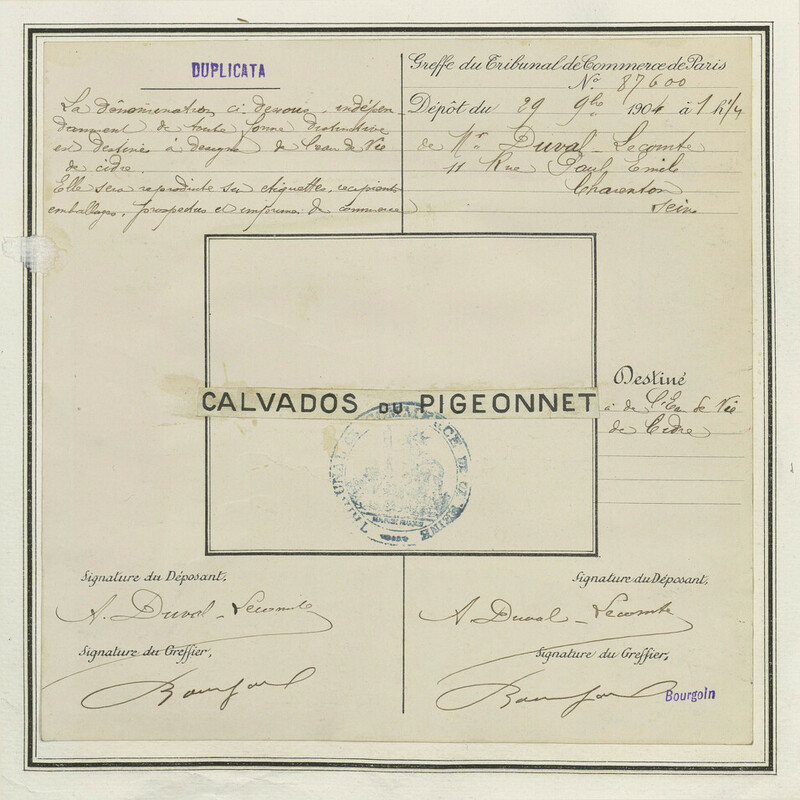 DUPLICATA
La dénomination ci-dessous, indépen
damment de toute forme distinctive
est destinée à désigner de l'eau de Vie
de cidre.
Elle sera reproduite sur étiquettes, récipients
emballages, prospectus et imprimés de commerce
Greffe du Tribunal de Commerce de Paris
No 87600
Dépôt du 29 9bre 1904 à 1 h 1/4
de Mr Duval-Lecomte
11 Rue Paul Emile
Charenton
Seine
CALVADOS DU PIGEONNET
Destiné
à de l'Eau de Vie
de Cidre
TRIBUNAL DE COMMERCE DE LA SEINE
Signature du Déposant,
A. Duval-Lecomte
Signature du Greffier,
Signature du Déposant,
A Duval-Lecomte
Signature du Greffier,
Bourgoin